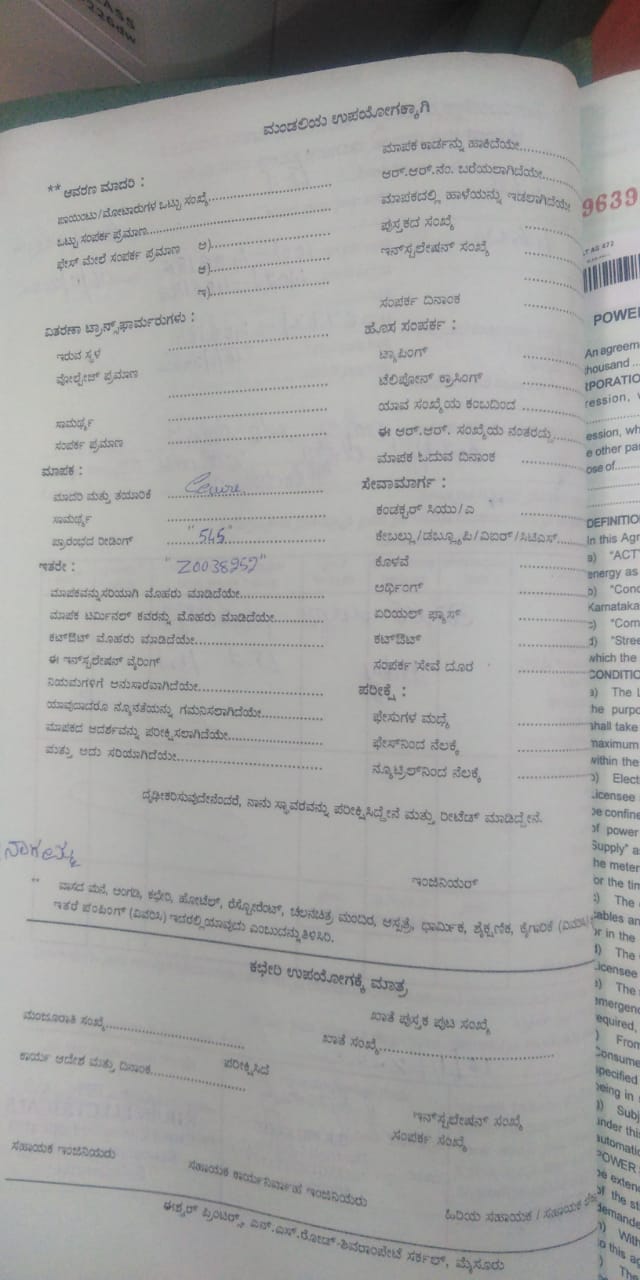 ಮಂಡಲಿಯ ಉಪಯೋಗಕ್ಕಾಗಿ
** ಆವರಣ ಮಾದರಿ :
ಪಾಯಿಂಟು/ಮೋಟಾರುಗಳ ಒಟ್ಟು ಸಂಖ್ಯೆ
ಒಟ್ಟು ಸಂಪರ್ಕ ಪ್ರಮಾಣ
ಫೇಸ್ ಮೇಲೆ ಸಂಪರ್ಕ ಪ್ರಮಾಣ ಅ)
ಆ)
ಇ)
ವಿತರಣಾ ಟ್ರಾನ್ಸ್‌ಫಾರ್ಮರುಗಳು :
ಇರುವ ಸ್ಥಳ
ವೋಲ್ಟೇಜ್ ಪ್ರಮಾಣ
ಸಾಮರ್ಥ್ಯ
ಸಂಪರ್ಕ ಪ್ರಮಾಣ
ಮಾಪಕ :
ಮಾದರಿ ಮತ್ತು ತಯಾರಿಕೆ
ಸಾಮರ್ಥ್ಯ
ಪ್ರಾರಂಭದ ರೀಡಿಂಗ್ "545"
ಇತರೇ : "Z0038959"
ಮಾಪಕವನ್ನು ಸರಿಯಾಗಿ ಮೊಹರು ಮಾಡಿದೆಯೇ
ಮಾಪಕ ಟರ್ಮಿನಲ್ ಕವರನ್ನು ಮೊಹರು ಮಾಡಿದೆಯೇ
ಕಟ್‌ಔಟ್ ಮೊಹರು ಮಾಡಿದೆಯೇ
ಈ ಇನ್‌ಸ್ಟಲೇಷನ್ ವೈರಿಂಗ್
ನಿಯಮಗಳಿಗೆ ಅನುಸಾರವಾಗಿದೆಯೇ
ಯಾವುದಾದರೂ ನ್ಯೂನತೆಯನ್ನು ಗಮನಿಸಲಾಗಿದೆಯೇ
ಮಾಪಕದ ಆದರ್ಶವನ್ನು ಪರೀಕ್ಷಿಸಲಾಗಿದೆಯೇ
ಮತ್ತು ಅದು ಸರಿಯಾಗಿದೆಯೇ
ಮಾಪಕ ಕಾರ್ಡನ್ನು ಹಾಕಿದೆಯೇ
ಆರ್.ಆರ್.ನಂ. ಬರೆಯಲಾಗಿದೆಯೇ
ಮಾಪಕದಲ್ಲಿ ಹಾಳೆಯನ್ನು ಇಡಲಾಗಿದೆಯೇ
ಪುಸ್ತಕದ ಸಂಖ್ಯೆ
ಇನ್‌ಸ್ಟಲೇಷನ್ ಸಂಖ್ಯೆ
ಸಂಪರ್ಕ ದಿನಾಂಕ
ಹೊಸ ಸಂಪರ್ಕ :
ಟ್ಯಾಪಿಂಗ್
ಟೆಲಿಪೋನ್ ಕ್ರಾಸಿಂಗ್
ಯಾವ ಸಂಖ್ಯೆಯ ಕಂಬದಿಂದ
ಈ ಆರ್.ಆರ್. ಸಂಖ್ಯೆಯ ನಂತರದ್ದು
ಮಾಪಕ ಓದುವ ದಿನಾಂಕ
ಸೇವಾಮಾರ್ಗ :
ಕಂಡಕ್ಟರ್ ಸಿಯು/ಎ
ಕೇಬಲ್ಲು/ಡಬ್ಲ್ಯೂಪಿ/ವಿಐಆರ್/ಸಿಟಿಎಸ್
ಕೊಳವೆ
ಅರ್ಥಿಂಗ್
ಏರಿಯಲ್ ಫ್ಯೂಸ್
ಕಟ್‌ಔಟ್
ಸಂಪರ್ಕ ಸೇವೆ ದೂರ
ಪರೀಕ್ಷೆ :
ಫೇಸುಗಳ ಮಧ್ಯೆ
ಫೇಸ್‌ನಿಂದ ನೆಲಕ್ಕೆ
ನ್ಯೂಟ್ರಲ್‌ನಿಂದ ನೆಲಕ್ಕೆ
ದೃಢೀಕರಿಸುವುದೇನೆಂದರೆ, ನಾನು ಸ್ಥಾವರವನ್ನು ಪರೀಕ್ಷಿಸಿದ್ದೇನೆ ಮತ್ತು ರೀಟೆಡ್ ಮಾಡಿದ್ದೇನೆ.
ಇಂಜಿನಿಯರ್
** ವಾಸದ ಮನೆ, ಅಂಗಡಿ, ಕಛೇರಿ, ಹೋಟೆಲ್, ರೆಸ್ಟೋರೆಂಟ್, ಚಲನಚಿತ್ರ ಮಂದಿರ, ಆಸ್ಪತ್ರೆ, ಧಾರ್ಮಿಕ, ಶೈಕ್ಷಣಿಕ, ಕೈಗಾರಿಕೆ
ಇತರೆ ಪಂಪಿಂಗ್ (ವಿವರಿಸಿ) ಇದರಲ್ಲಿ ಯಾವುದು ಎಂಬುದನ್ನು ತಿಳಿಸಿರಿ.
ಕಛೇರಿ ಉಪಯೋಗಕ್ಕೆ ಮಾತ್ರ
ಮಂಜೂರಾತಿ ಸಂಖ್ಯೆ
ಖಾತೆ ಪುಸ್ತಕ ಪುಟ ಸಂಖ್ಯೆ
ಖಾತೆ ಸಂಖ್ಯೆ
ಕಾರ್ಯ ಆದೇಶ ಮತ್ತು ದಿನಾಂಕ
ಪರೀಕ್ಷಿಸಿದೆ
ಇನ್‌ಸ್ಟಲೇಷನ್ ಸಂಖ್ಯೆ
ಸಂಪರ್ಕ ಸಂಖ್ಯೆ
ಸಹಾಯಕ ಇಂಜಿನಿಯರು
ಸಹಾಯಕ ಕಾರ್ಯನಿರ್ವಾಹ ಇಂಜಿನಿಯರು
ಹಿರಿಯ ಸಹಾಯಕ / ಸಹಾಯಕ
ಈಶ್ವರ್ ಪ್ರಿಂಟರ್ಸ್, ಎನ್.ಎಸ್.ರೋಡ್-ಶಿವರಾಂಪೇಟೆ ಸರ್ಕಲ್, ಮೈಸೂರು
9639
AG 472
POWER
An agreem
thousand
RPORATIO
ression,
ession, wh
e other pa
ose of
DEFINITIO
In this Agr
a) "ACT
energy as
b) "Conc
Karnataka
c) "Com
d) "Stree
which the
CONDITIO
a) The L
the purpo
shall take
maximum
within the
b) Elect
Licensee
be confine
of power
Supply" a
the meter
or the tim